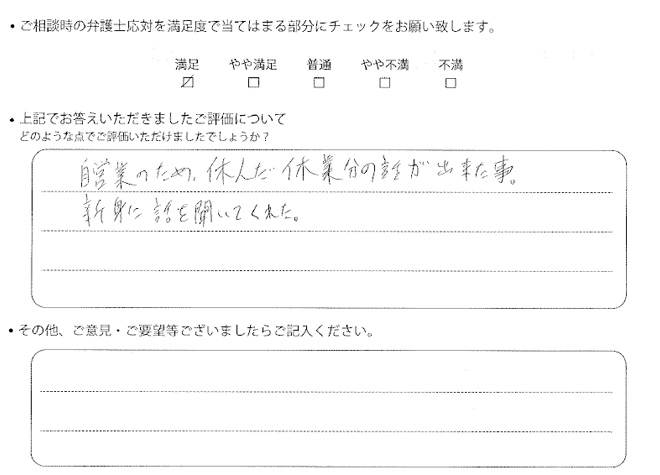 ・ご相談時の弁護士応対を満足度で当てはまる部分にチェックをお願い致します。
満足 やや満足 普通 やや不満 不満
☑ □ □ □ □
・上記でお答えいただきましたご評価について
どのような点でご評価いただけましたでしょうか？
自営業のため、休んだ休業分の話が出来た事。
新身に話を聞いてくれた。
・その他、ご意見・ご要望等ございましたらご記入ください。